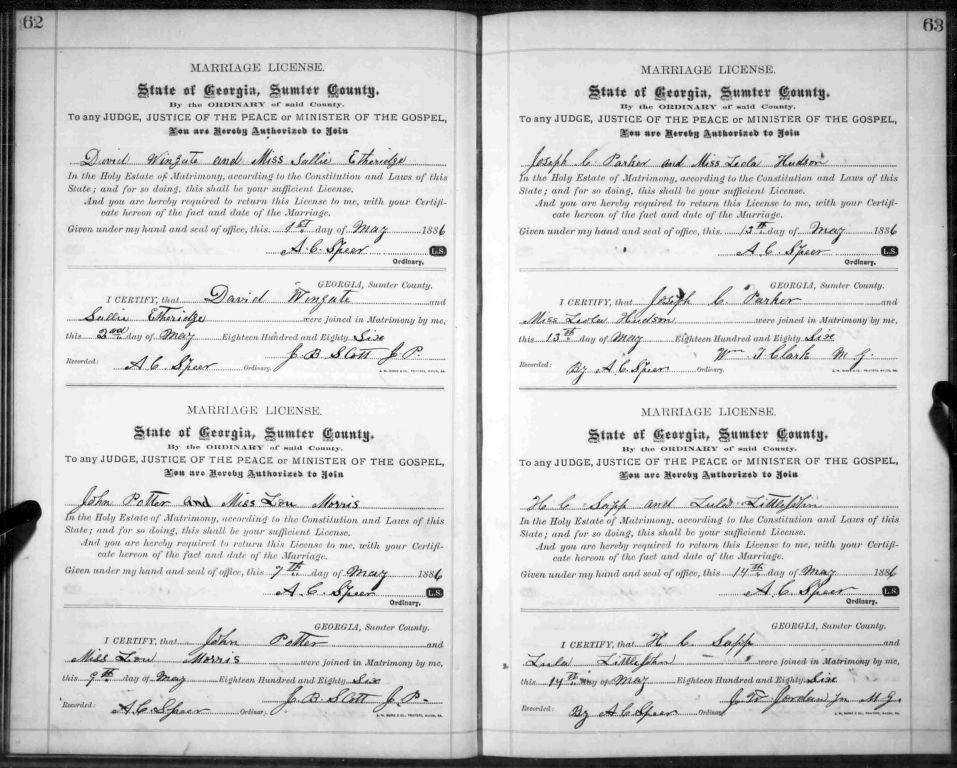 62
MARRIAGE LICENSE.
State of Georgia, Sumter County.
By the ORDINARY of said County.
To any JUDGE, JUSTICE OF THE PEACE or MINISTER OF THE GOSPEL,
You are Hereby Authorized to Join
David Wingate and Miss Sallie Etheridge
In the Holy Estate of Matrimony, according to the Constitution and Laws of this
State; and for so doing, this shall be your sufficient License.
And you are hereby required to return this License to me, with your Certifi-
cate hereon of the fact and date of the Marriage.
Given under my hand and seal of office, this 1st day of May 1886
A. C. Speer L.S.
Ordinary.
GEORGIA, Sumter County.
I CERTIFY, that David Wingate and
Sallie Etheridge were joined in Matrimony by me,
this 2nd day of May Eighteen Hundred and Eighty Six
J. B Scott J. P.
Recorded: A. C. Speer Ordinary.
MARRIAGE LICENSE.
State of Georgia, Sumter County.
By the ORDINARY of said County.
To any JUDGE, JUSTICE OF THE PEACE or MINISTER OF THE GOSPEL,
You are Hereby Authorized to Join
John Potter and Miss Lou Morris
In the Holy Estate of Matrimony, according to the Constitution and Laws of this
State; and for so doing, this shall be your sufficient License.
And you are hereby required to return this License to me, with your Certifi-
cate hereon of the fact and date of the Marriage.
Given under my hand and seal of office, this 7th day of May 1886
A. C. Speer L.S.
Ordinary.
GEORGIA, Sumter County.
I CERTIFY, that John Potter and
Miss Lou Morris were joined in Matrimony by me,
this 9th day of May Eighteen Hundred and Eighty Six
J. B Scott J. P.
Recorded: A. C. Speer Ordinary.
63
MARRIAGE LICENSE.
State of Georgia, Sumter County.
By the ORDINARY of said County.
To any JUDGE, JUSTICE OF THE PEACE or MINISTER OF THE GOSPEL,
You are Hereby Authorized to Join
Joseph C. Parker and Miss Leola Hudson
In the Holy Estate of Matrimony, according to the Constitution and Laws of this
State; and for so doing, this shall be your sufficient License.
And you are hereby required to return this License to me, with your Certifi-
cate hereon of the fact and date of the Marriage.
Given under my hand and seal of office, this 13th day of May 1886
A. C. Speer L.S.
Ordinary.
GEORGIA, Sumter County.
I CERTIFY, that Joseph C. Parker and
Miss Leola Hudson were joined in Matrimony by me,
this 13th day of May Eighteen Hundred and Eighty Six
Wm T. Clark M. G.
Recorded: By A. C. Speer Ordinary.
MARRIAGE LICENSE.
State of Georgia, Sumter County.
By the ORDINARY of said County.
To any JUDGE, JUSTICE OF THE PEACE or MINISTER OF THE GOSPEL,
You are Hereby Authorized to Join
H C Sapp and Lula Littlejohn
In the Holy Estate of Matrimony, according to the Constitution and Laws of this
State; and for so doing, this shall be your sufficient License.
And you are hereby required to return this License to me, with your Certifi-
cate hereon of the fact and date of the Marriage.
Given under my hand and seal of office, this 14th day of May 1886
A. C. Speer L.S.
Ordinary.
GEORGIA, Sumter County.
I CERTIFY, that H C. Sapp and
Lula Littlejohn were joined in Matrimony by me,
this 14th day of May Eighteen Hundred and Eighty Six
Jordan Jn M. G.
Recorded: By A. C Speer Ordinary